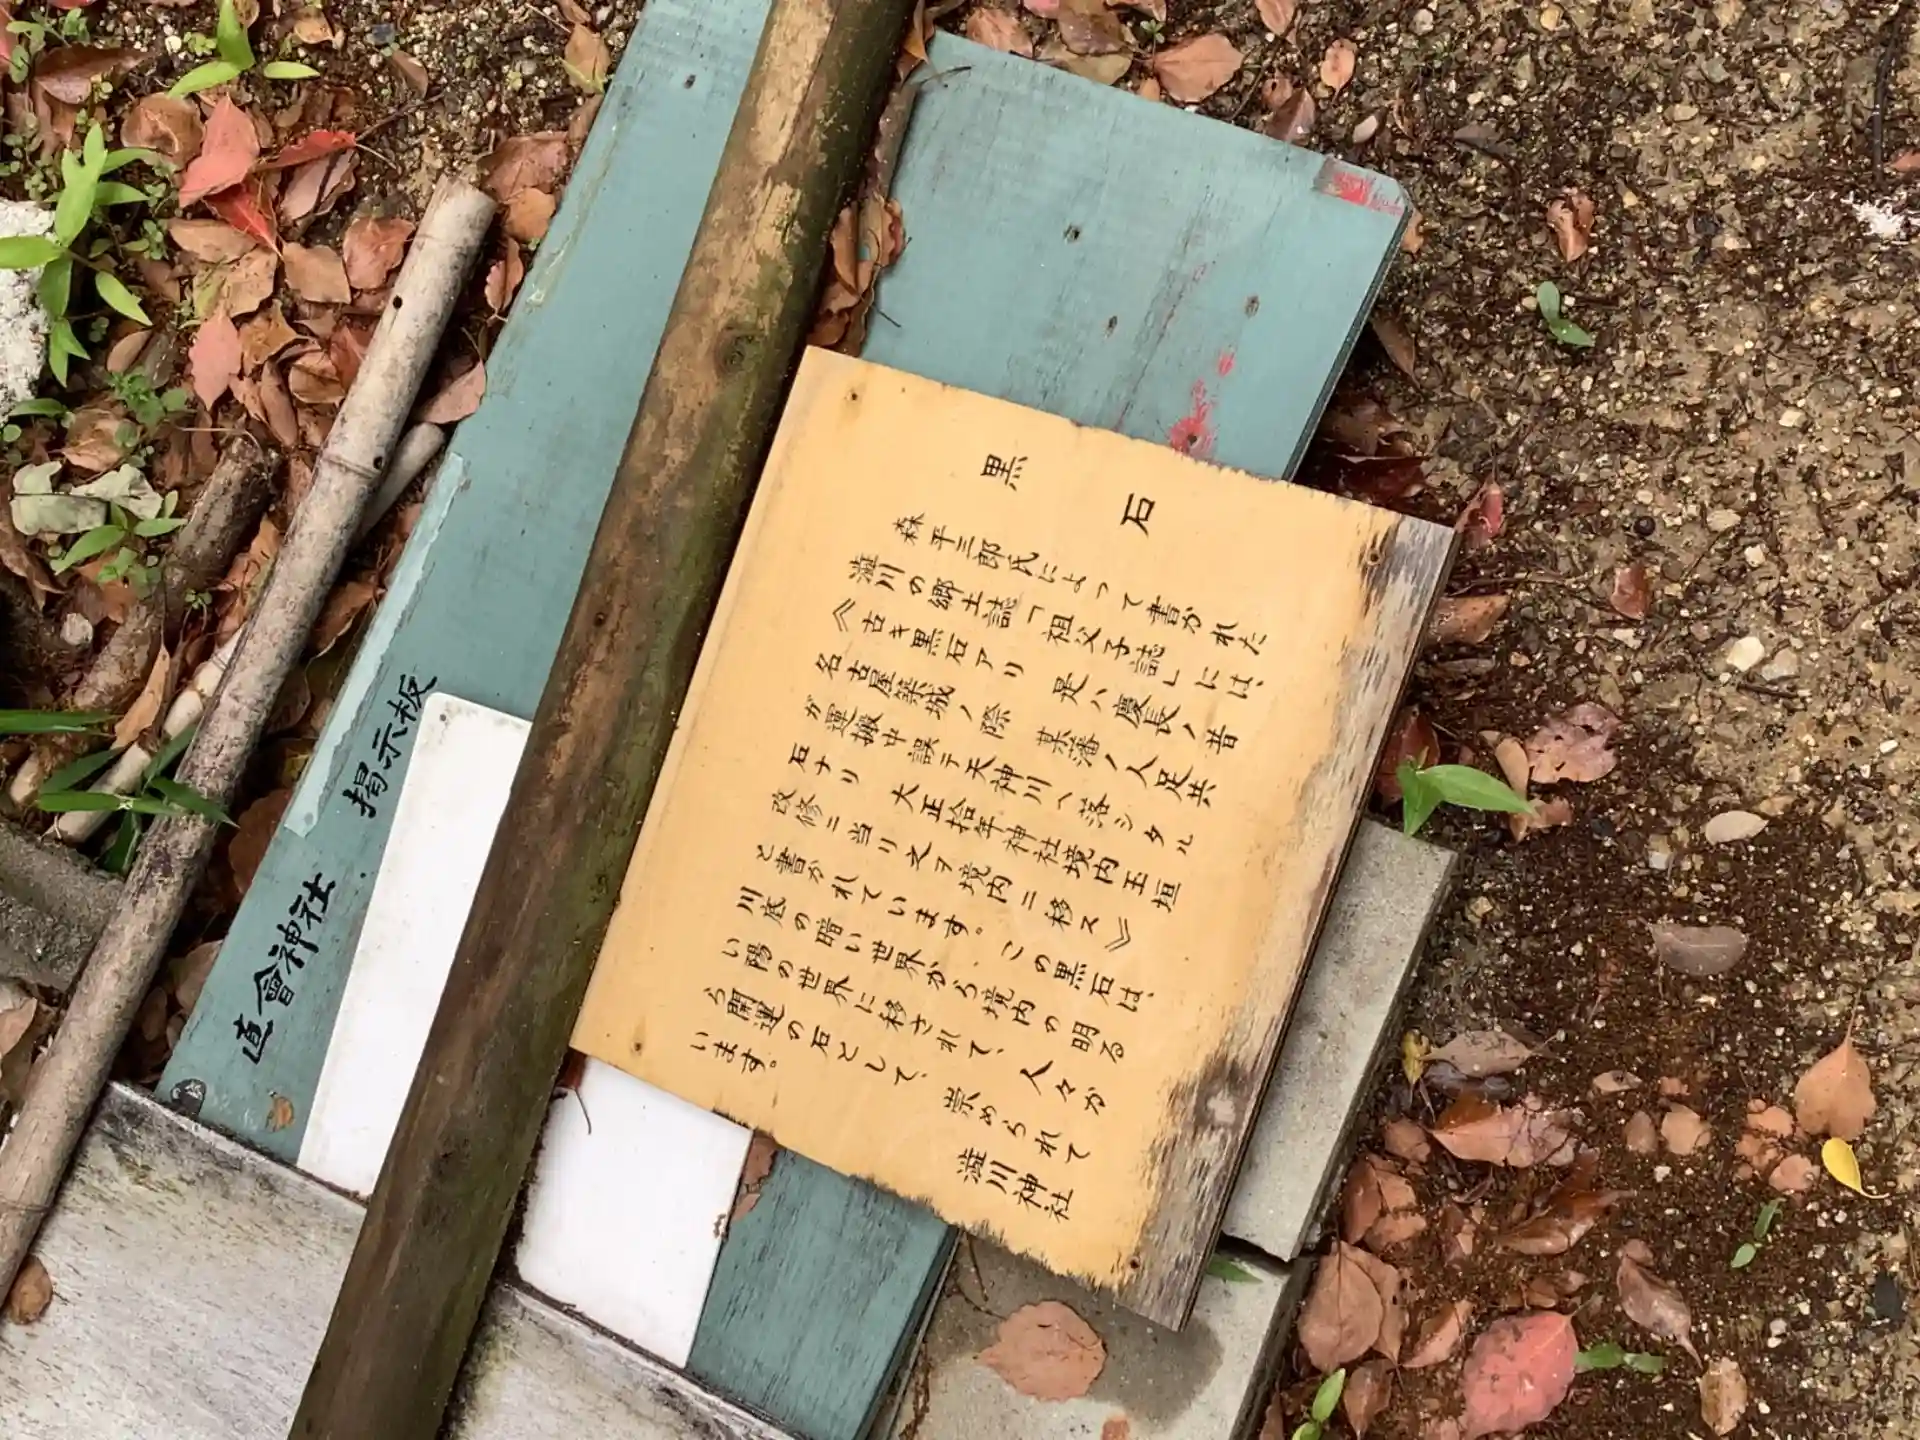 黒石
森平三郎氏によって書かれた
澁川の郷土誌「祖父子誌」には、
《古キ黒石アリ　是ハ慶長ノ昔
名古屋築城ノ際　某藩ノ人足共
ガ運搬中誤テ天神川へ落シタル
石ナリ　大正拾年神社境内玉垣
改修ニ当リ之ヲ境内ニ移ス》
と書かれています。この黒石は、
川底の暗い世界から境内の明る
い陽の世界に移されて、人々か
ら開運の石として、崇められて
います。
澁川神社
直會神社　掲示板